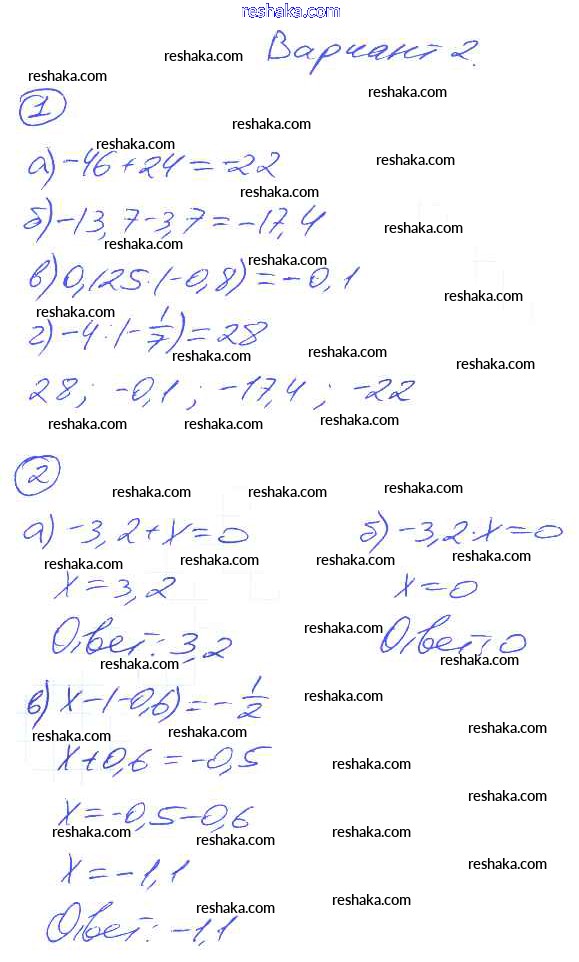 reshaka.com
Вариант 2.
1
а) -46+24=-22
б) -13,7-3,7=-17,4
в) 0,125·(-0,8)=-0,1
г) -4:(-1/7)=28
28; -0,1; -17,4; -22
2
а) -3,2+x=0
x=3,2
Ответ: 3,2
б) -3,2·x=0
x=0
Ответ: 0
в) x-(-0,6)=-1/2
x+0,6=-0,5
x=-0,5-0,6
x=-1,1
Ответ: -1,1